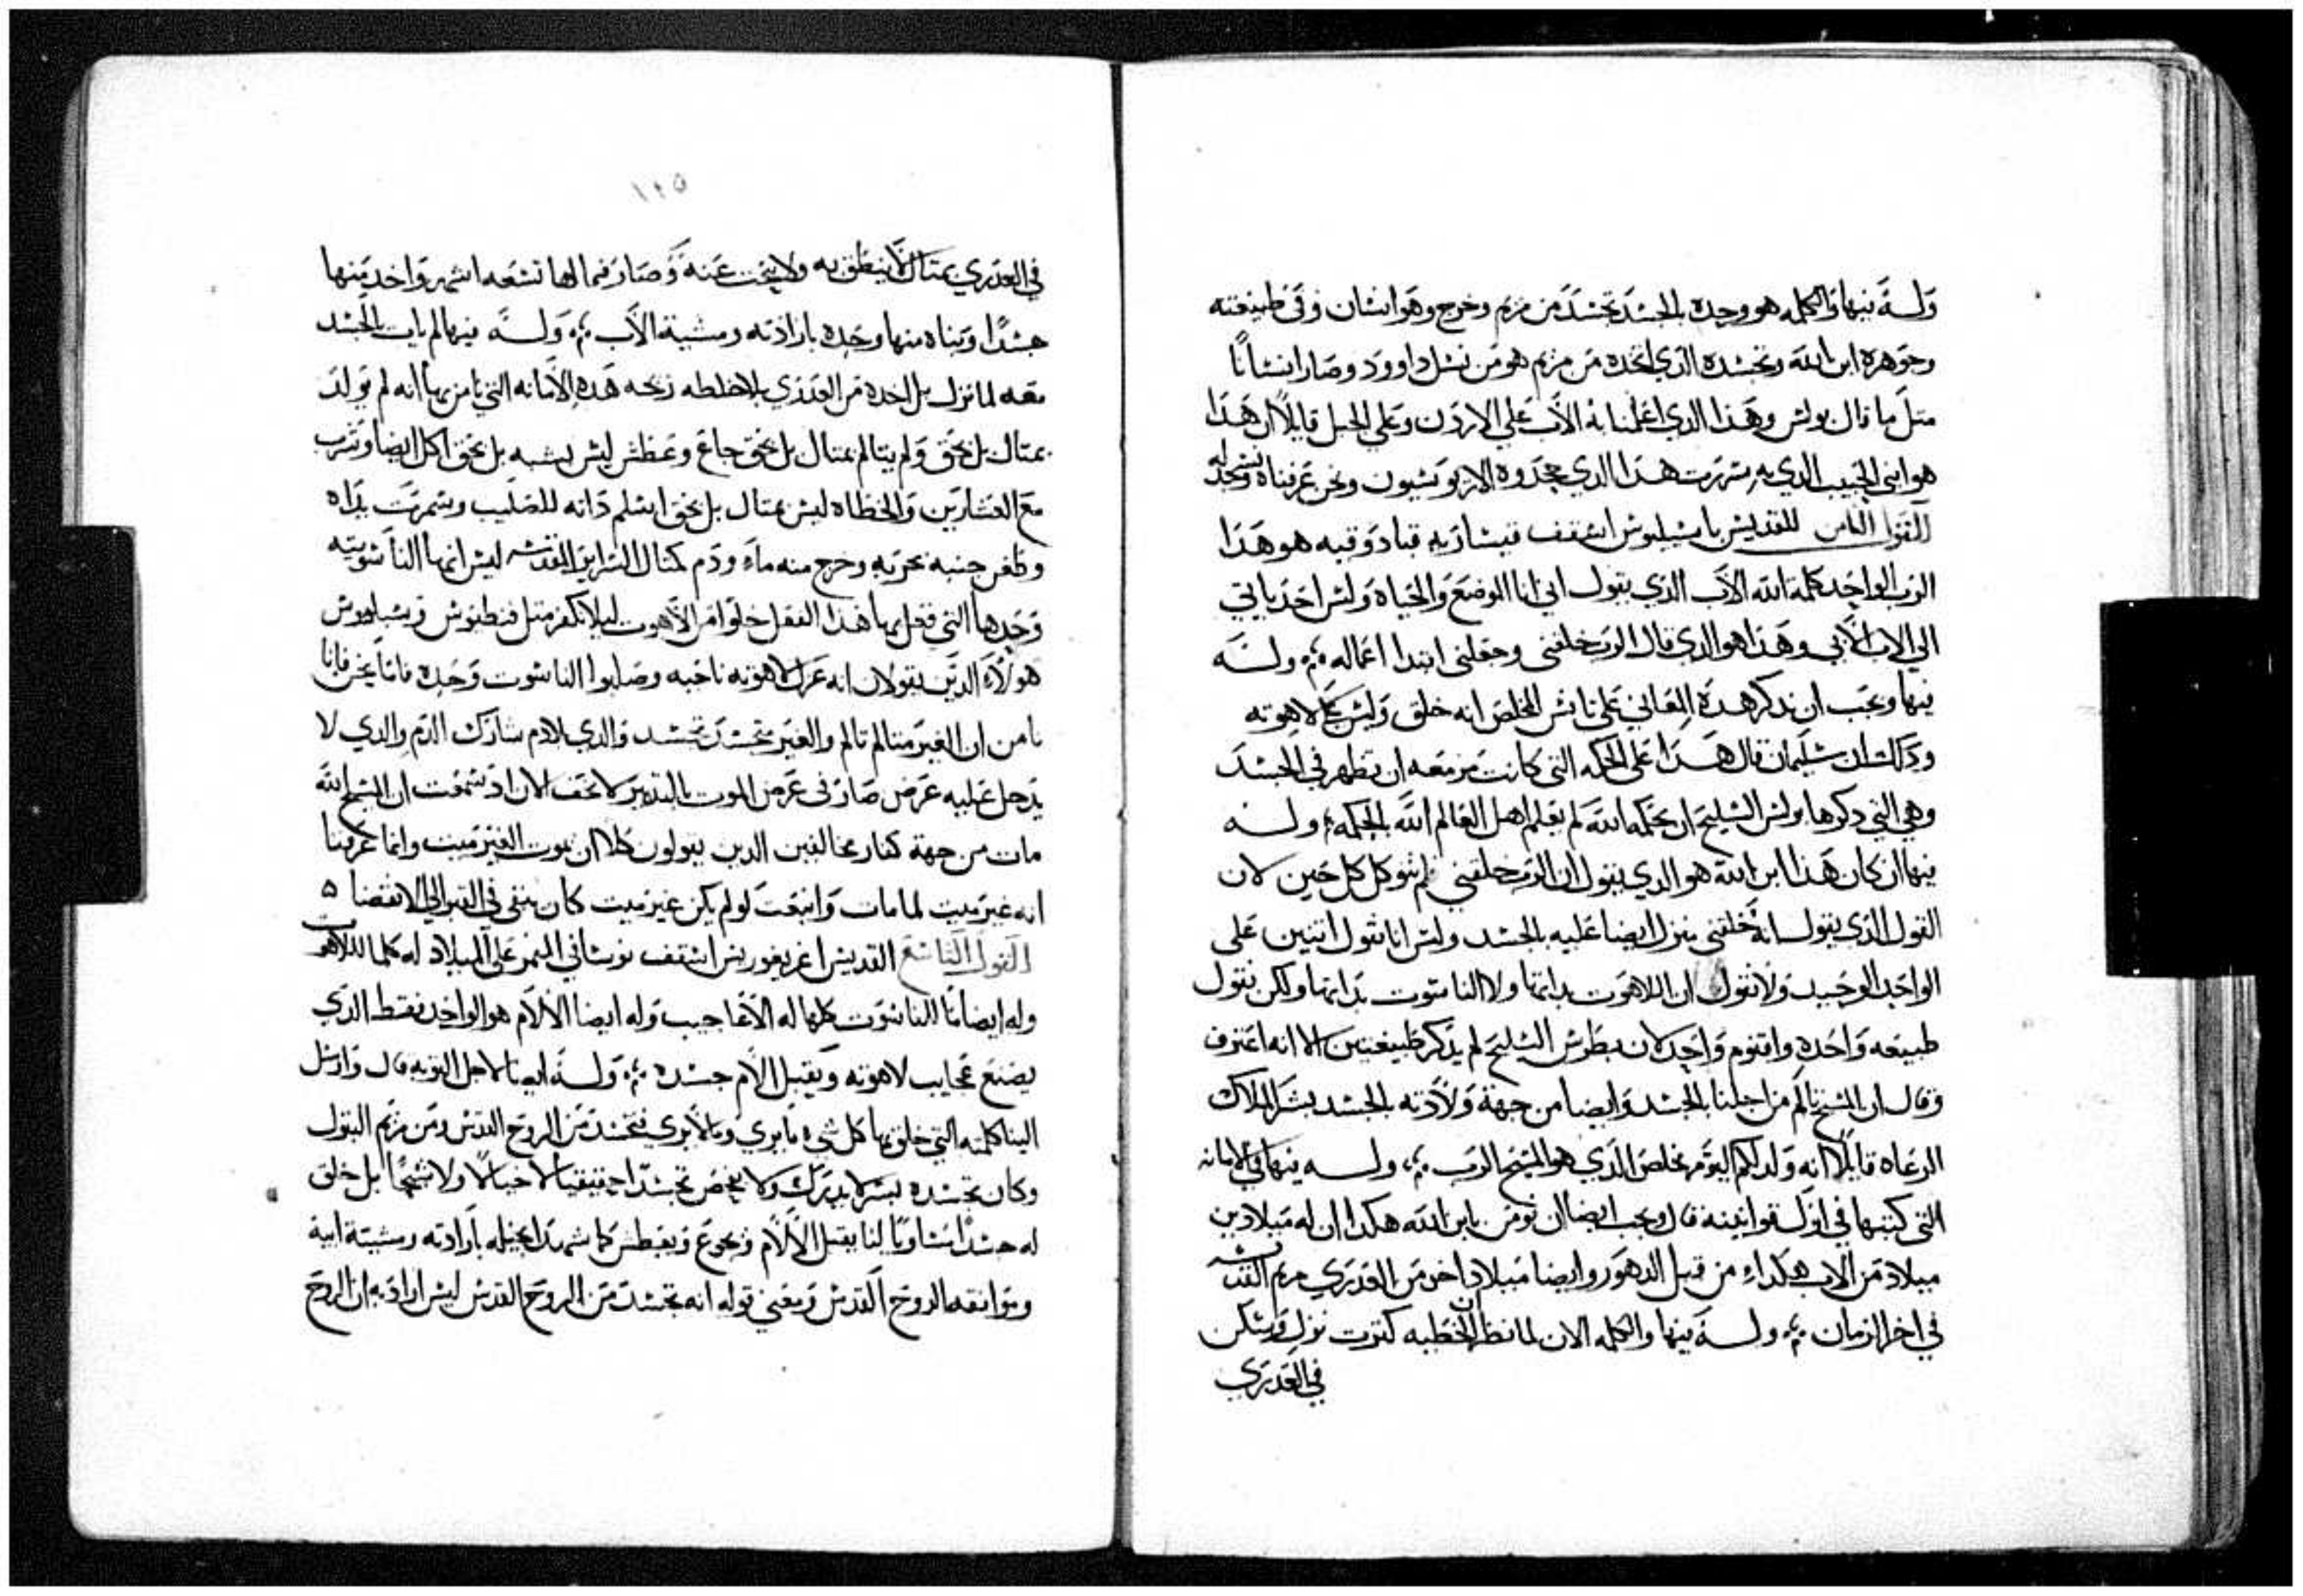 وله فيها والكلمه هو وحده بالجسد تجسد من مريم وخرج وهو انسان وفي طبيعته
وجوهره ابن الله وتجسده الدي اتخده من مريم هو من نسل داوود وصار انسانًا
متل ما قال بولس وهدا الدي اعلمنا به الاب علي الاردن وعلي الجبل قايلًا ان هدا
هو ابني الحبيب الدي به سررت هدا الدي جحدوه الاريوسيون ونحن عرفناه نسجد له
القول الثامن للقديس باسيليوس اسقف قيساريه قبادوقيه هو هدا
الرب الواحد كلمة الله الاب الدي يقول اني انا الوضع والحياه وليس احد ياتي
الي الاب الا بي وهدا هو الدي قال الرب خلقني وجعلني ابتدا اعماله وله
فيها ويجب ان ندكر هده المعاني علي تانس المخلص انه خلق وليس علي لاهوته
ودلك ان سليمان قال هدا علي الحكمه التي كانت مزمعه ان تظهر في الجسد
وهي التي دكرها بولس السليح ان بحكمة الله لم يعلم اهل العالم الله بالحكمه وله
فيها ان كان هدا ابن الله هو الدي يقول ان الرب خلقني لم نتوكل كل حين لان
القول الدي يقول انه خلقني ينزل ايضا عليه بالجسد وليس انا نقول اتنين علي
الواحد الوحيد ولا نقول ان اللاهوت بداتها ولا الناسوت بداتها ولكن نقول
طبيعه واحده واقنوم واحد لان بطرس السليح لم يدكر طبيعتين الا انه اعترف
وقال ان المسيح تالم من اجلنا بالجسد وايضا من جهة ولادته بالجسد بشر الملاك
الرعاه قايلًا انه ولد لكم اليوم مخلص الدي هو المسيح الرب وله فيها في الامانه
التي كتبها في اول قوانينه قال ويجب ايضا ان نومن بابن الله هكدا ان له ميلادين
ميلاد من الاب هكدا من قبل الدهور وايضا ميلاد اخر من العدري مريم القديسه
في اخر الزمان وله فيها والكلمه الان لما نظر ان الخطيه كترت نزل وسكن
في العدري
١٢٥
في العدري بمتال لا ينطق به ولا يبحت عنه وصار فيما لها تسعه اشهر واخد منها
جسدًا وبناه منها وحده بارادته ومشية الاب وله فيها لم يات بالجسد
معه لما نزل بل اخده من العدري بلا خلطه زيجه هده الامانه التي نامن بها انه لم يولد
بمتال بل بحق ولم يتالم بمتال بل بحق جاع وعطش ليس بشبه بل بحق اكل ايضا وشرب
مع العشارين والخطاه ليس بمتال بل بحق اسلم داته للصليب وسمرت يداه
وطعن جنبه بحربه وخرج منه ماء ودم كمتال السراير المقدسه ليس انها الناسوتيه
وحدها التي فعل بها هدا الفعل خلوًا من اللاهوت ليلا نكفر متل
هولاء الدين يقولان انه عزل لاهوته ناحيه وصلبوا الناسوت وحده فاما نحن فانا
نامن ان الغير متالم تالم والغير متجسد تجسد والدي بلا دم شارك الدم والدي لا
يدخل عليه عرض صار في عرض الموت بالتدبير لا تخف الان اد سمعت ان المسيح الله
مات من جهة كفار مخالفين الدين يقولون كلا ان يموت الغير ميت وانما عرفنا
انه غير ميت لما مات وانبعت لو لم يكن غير ميت كان يبقي في القبر الي الانقضا ٥
القول التاسع القديس اغريغوريس اسقف نوساني الميمر علي الميلاد له كلما للاهوت
وله ايضا ما للناسوت كلها له الاعاجيب وله ايضا الالام هو الواحد فقط الدي
يصنع عجايب لاهوته ويقبل الالم جسده وله ايضا لاجل التوبه قال وارسل
الينا كلمته التي خلق بها كل شيء ما يري وما لا يري فتجسد من الروح القدس ومن مريم البتول
وكان تجسده بسر لا يدرك ولا يفحص تجسدًا حقيقيا لا خيالًا ولا شبحًا بل خلق
له جسدًا مساويًا لنا يقبل الالام ويجوع ويعطش كما شهد انجيله بارادته ومشية ابيه
وموافقه الروح القدس ومعني قوله انه تجسد من الروح القدس ليس اراد به ان الروح